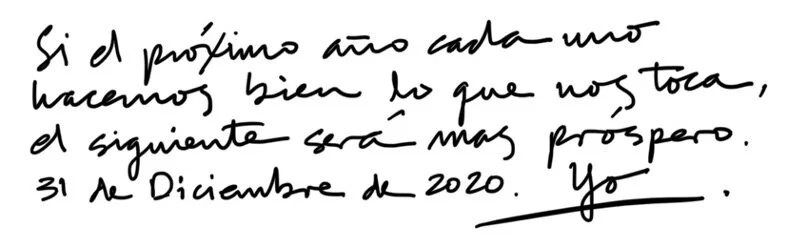 Si el próximo año cada uno
hacemos bien lo que nos toca,
el siguiente será mas próspero.
31 de Diciembre de 2020. Yo.